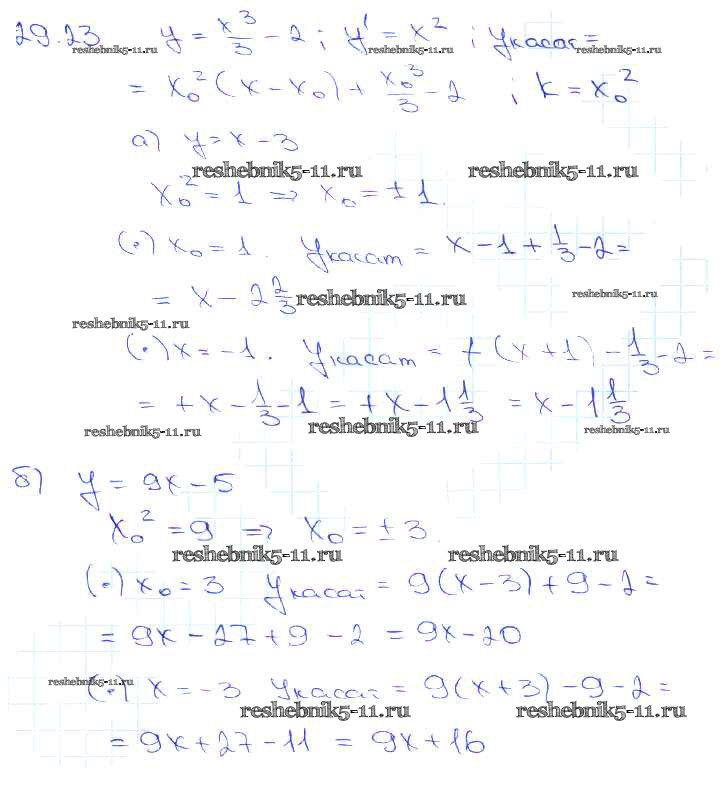 29.23 y = x³/3 - 2 ; y' = x² ; y касат =
reshebnik5-11.ru reshebnik5-11.ru reshebnik5-11.ru
= x₀² (x - x₀) + x₀³/3 - 2 ; k = x₀²
а) y = x - 3
reshebnik5-11.ru reshebnik5-11.ru
x₀² = 1 => x₀ = ± 1.
(•) x₀ = 1. y касат = x - 1 + 1/3 - 2 =
= x - 2 2/3 reshebnik5-11.ru reshebnik5-11.ru
reshebnik5-11.ru
(•) x = -1. y касат = + (x + 1) - 1/3 - 2 =
= + x - 1/3 - 1 = + x - 1 1/3 = x - 1 1/3
reshebnik5-11.ru reshebnik5-11.ru reshebnik5-11.ru
б) y = 9x - 5
x₀² = 9 => x₀ = ± 3.
reshebnik5-11.ru reshebnik5-11.ru
(•) x₀ = 3 y касат = 9(x - 3) + 9 - 2 =
= 9x - 27 + 9 - 2 = 9x - 20
reshebnik5-11.ru
(•) x = -3 y касат = 9(x + 3) - 9 - 2 =
reshebnik5-11.ru reshebnik5-11.ru
= 9x + 27 - 11 = 9x + 16